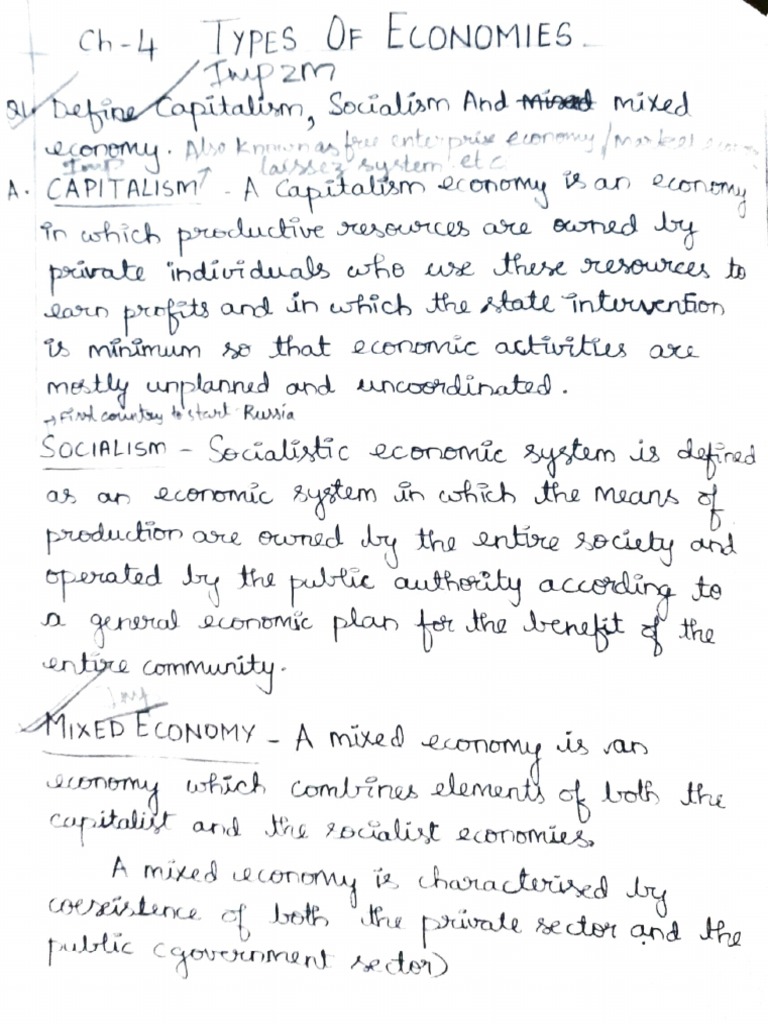 Ch-4 TYPES OF ECONOMIES
Imp 2M
Q1. Define Capitalism, Socialism And mixed mixed
economy. Also known as free enterprise economy/market
Imp laissez system etc
A. CAPITALISM - A Capitalism economy is an economy
in which productive resources are owned by
private individuals who use these resources to
earn profits and in which the state intervention
is minimum so that economic activities are
mostly unplanned and uncoordinated.
→ First country to start Russia
SOCIALISM - Socialistic economic system is defined
as an economic system in which the means of
production are owned by the entire society and
operated by the public authority according to
a general economic plan for the benefit of the
entire community.
Imp
MIXED ECONOMY - A mixed economy is an
economy which combines elements of both the
capitalist and the socialist economies.
A mixed economy is characterised by
coexistence of both the private sector and the
public (government sector)